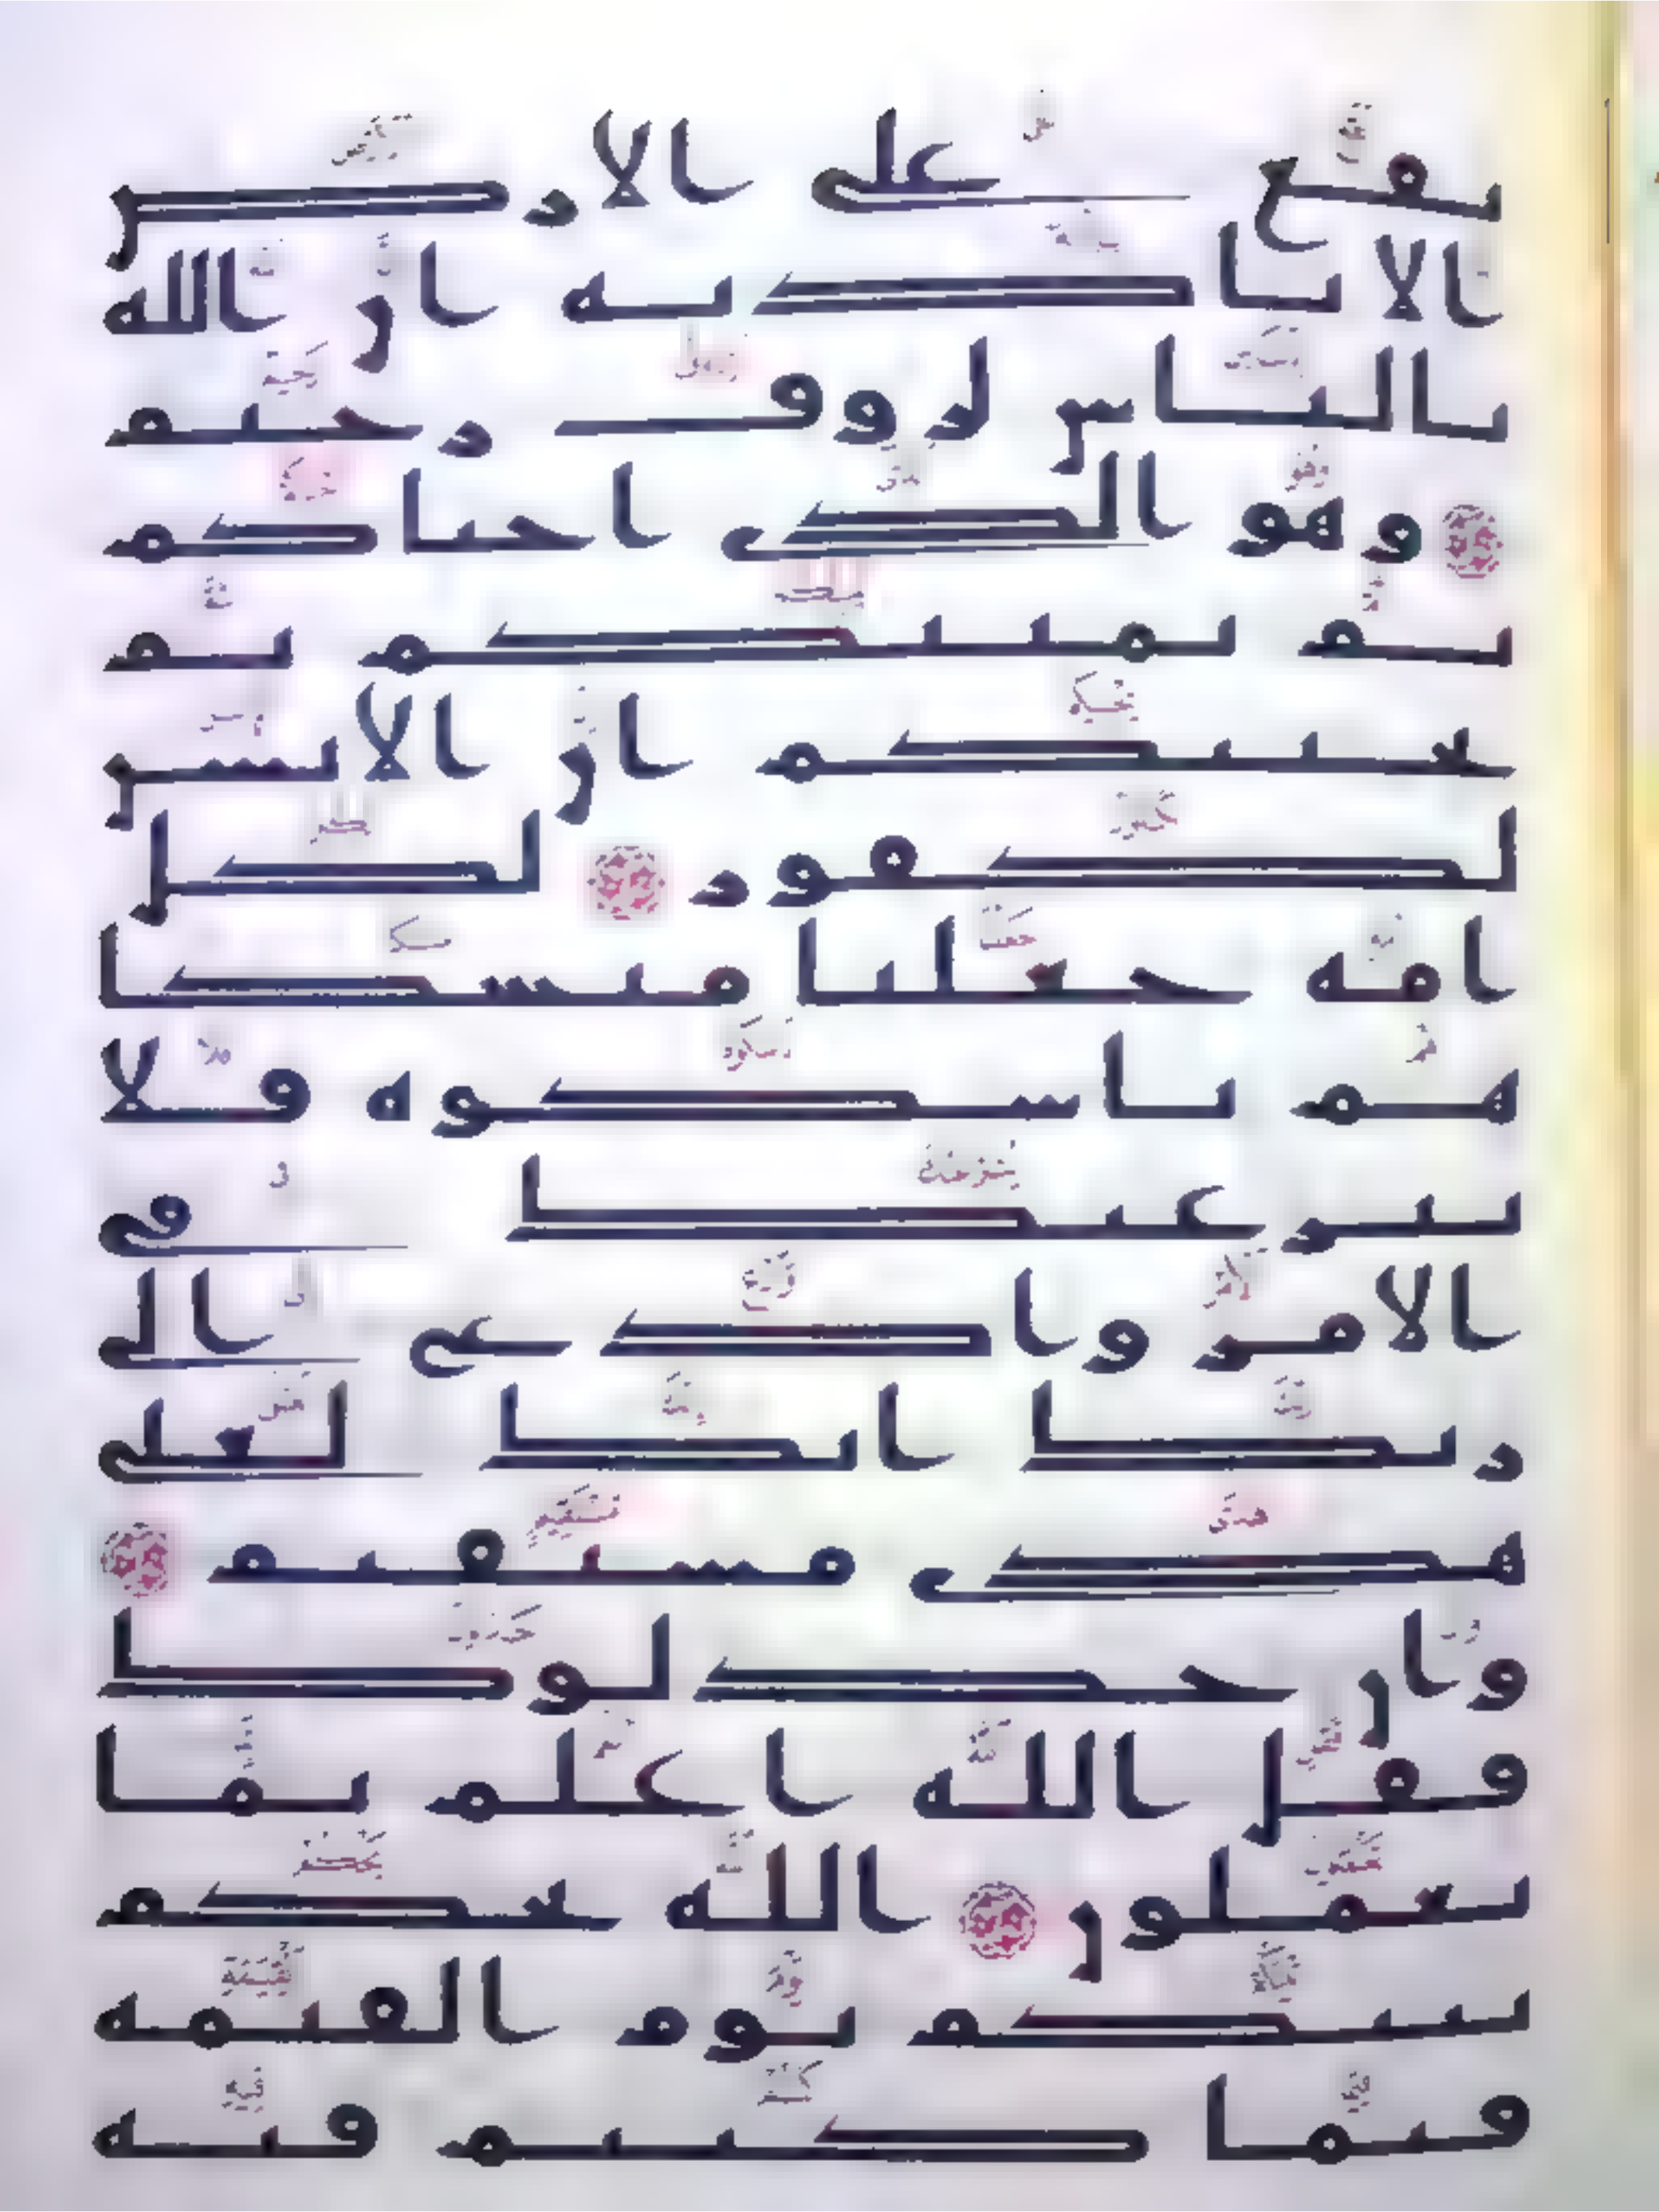 تقع على الارض
الا باذنه ان الله
بالناس لروف رحيم
وهو الذى احياكم
ثم يميتكم ثم
يحييكم ان الانسن
لكفور لكل
امة جعلنا منسكا
هم ناسكوه فلا
ينزعنك فى
الامر وادع الى
ربك انك لعلى
هدى مستقيم
وان جدلوك
فقل الله اعلم بما
تعملون الله يحكم
بينكم يوم القيمة
فيما كنتم فيه